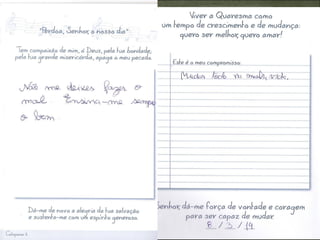 "Perdoa, Senhor, o nosso dia"
Tem compaixão de mim, ó Deus, pela tua bondade;
pela tua grande misericórdia, apaga o meu pecado.
Não me deixes fazer o
mal. Ensina-me sempre
o bem.
Dá-me de novo a alegria da tua salvação
e sustenta-me com um espírito generoso.
Viver a Quaresma como
um tempo de crescimento e de mudança:
quero ser melhor, quero amar!
Este é o meu compromisso:
Senhor, dá-me força de vontade e coragem
para ser capaz de mudar
8 / 3 / 19